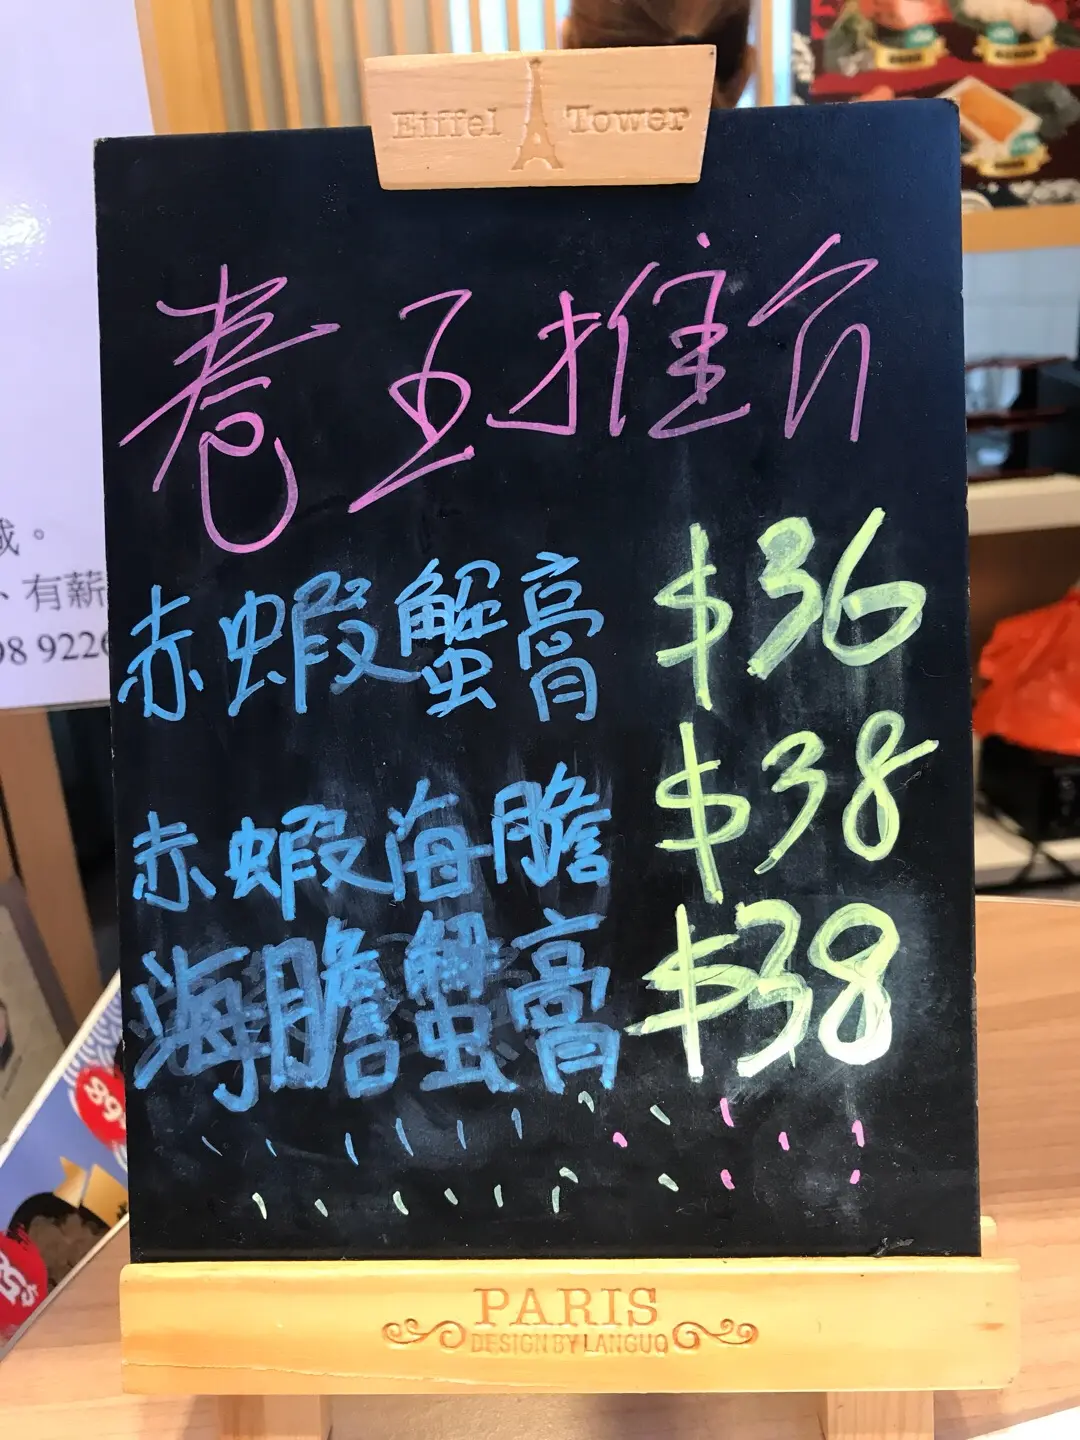 Eiffel Tower
卷王推介
赤蝦蟹膏 $36
赤蝦海膽 $38
海膽蟹膏 $38
PARIS
DESIGN BY LANGUO
。
、有薪
98 9226